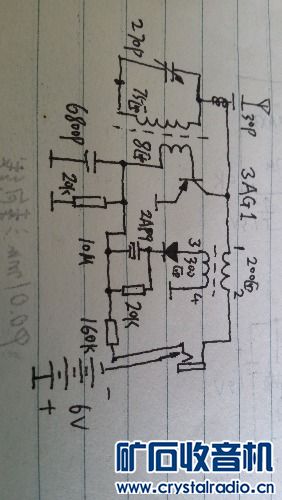 30P
270P
75匝
8匝
3AG1
6800P
20K
2AP9
10M
3
300
匝
4
1
200匝
2
20K
160K
6V
+
-
矿石收音机
www.crystalradio.cn